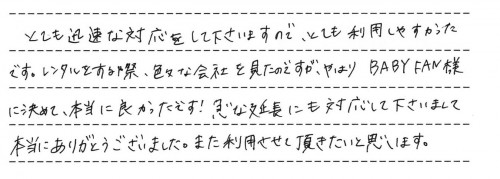 とても迅速な対応をして下さいますので、とても利用しやすかった
です。レンタルをする際、色々な会社を見たのですが、やはり BABY FAN様
に決めて、本当に良かったです！急な延長にも対応して下さいまして
本当にありがとうございました。また利用させて頂きたいと思います。